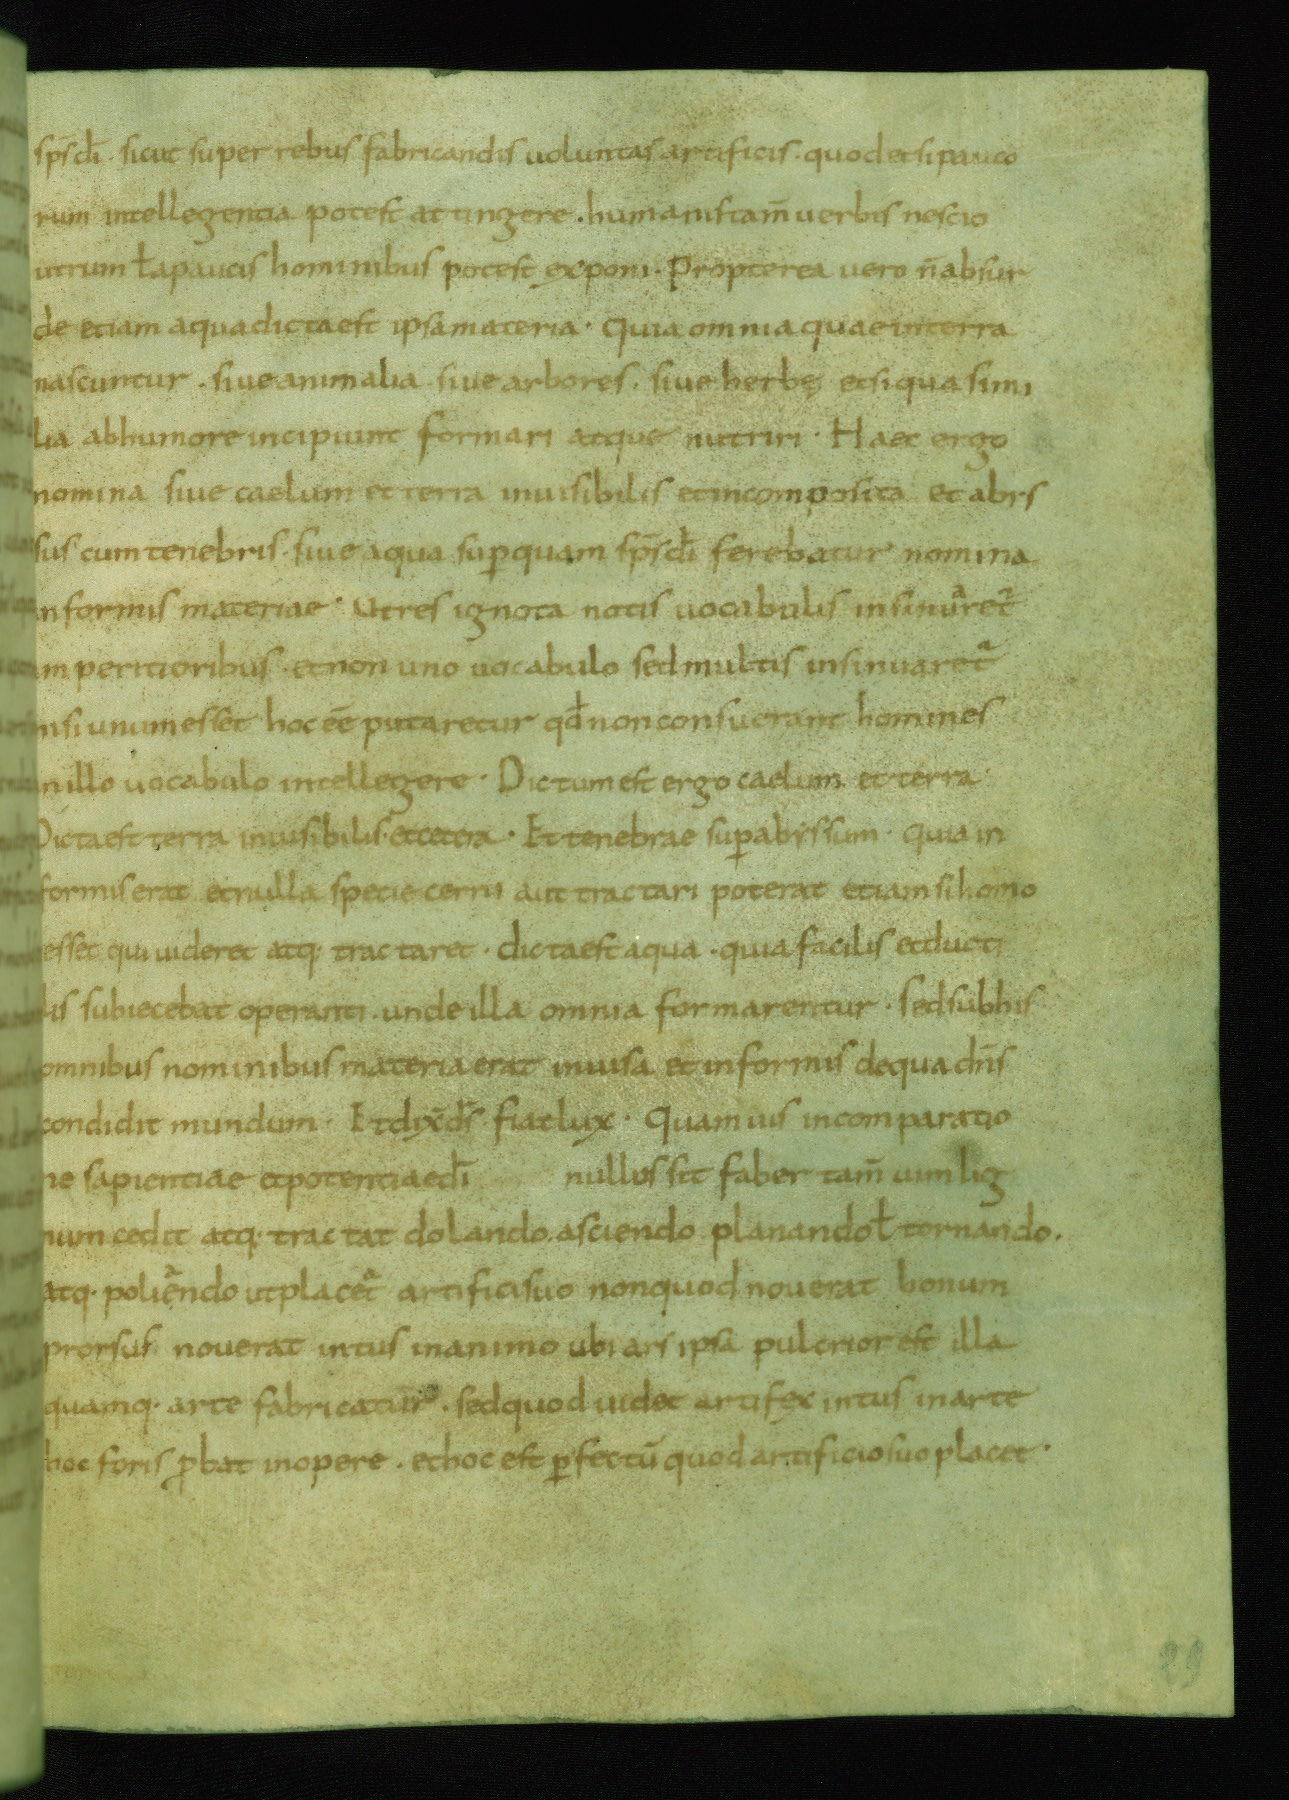 sp̄s dī · sicut super rebus fabricandis uoluntas artificis · quod etsi pauco
rum intellegentia potest attingere · humanis tam̄ uerbis nescio
utrum ł a paucis hominibus potest exponi · Propterea uero n̄ absur
de etiam aqua dicta est ipsa materia · Quia omnia quae in terra
nascuntur · siue animalia · siue arbores · siue herbę et si qua simi
lia ab humore incipiunt formari atque nutriri · Haec ergo
nomina siue caelum et terra inuisibilis et incomposita et abys
sus cum tenebris · siue aqua sup̱ quam sp̄s dī ferebatur nomina
informis materiae · Ut res ignota notis uocabulis insinuaret̄
imperitioribus · et non uno uocabulo sed multis insinuaret̄
nisi unum esset hoc eē putaretur qđ non consuerant homines
in illo uocabulo intellegere · Dictum est ergo caelum et terra
Dicta est terra inuisibilis · et cetera · Et tenebrae sup̱ abyssum · quia in
formis erat et nulla specie cerni aut tractari poterat etiam si homo
esset qui uideret atq· tractaret · dicta est aqua · quia facilis et ducti
lis subiecebat operanti · unde illa omnia formarentur · sed sub his
omnibus nominibus materia erat inuisa et informis de qua dn̄s
condidit mundum · Et dix̄ d̄s fiat lux · Quamuis in comparatio
ne sapientiae et potentiae dī nullus sit faber tam̄ cum lig
num cedit atq· tractat dolando · asciendo planando ł tornando ·
atq· poliendo ut placet artifici suo non quod nouerat bonum
prorsus nouerat intus in animo ubi ars ipsa pulcrior est illa
quamq· arte fabricatur · sed quod uidet artifex intus in arte
hoc foris ꝓbat in opere · et hoc est ꝑfectū quod artificio suo placet ·
29